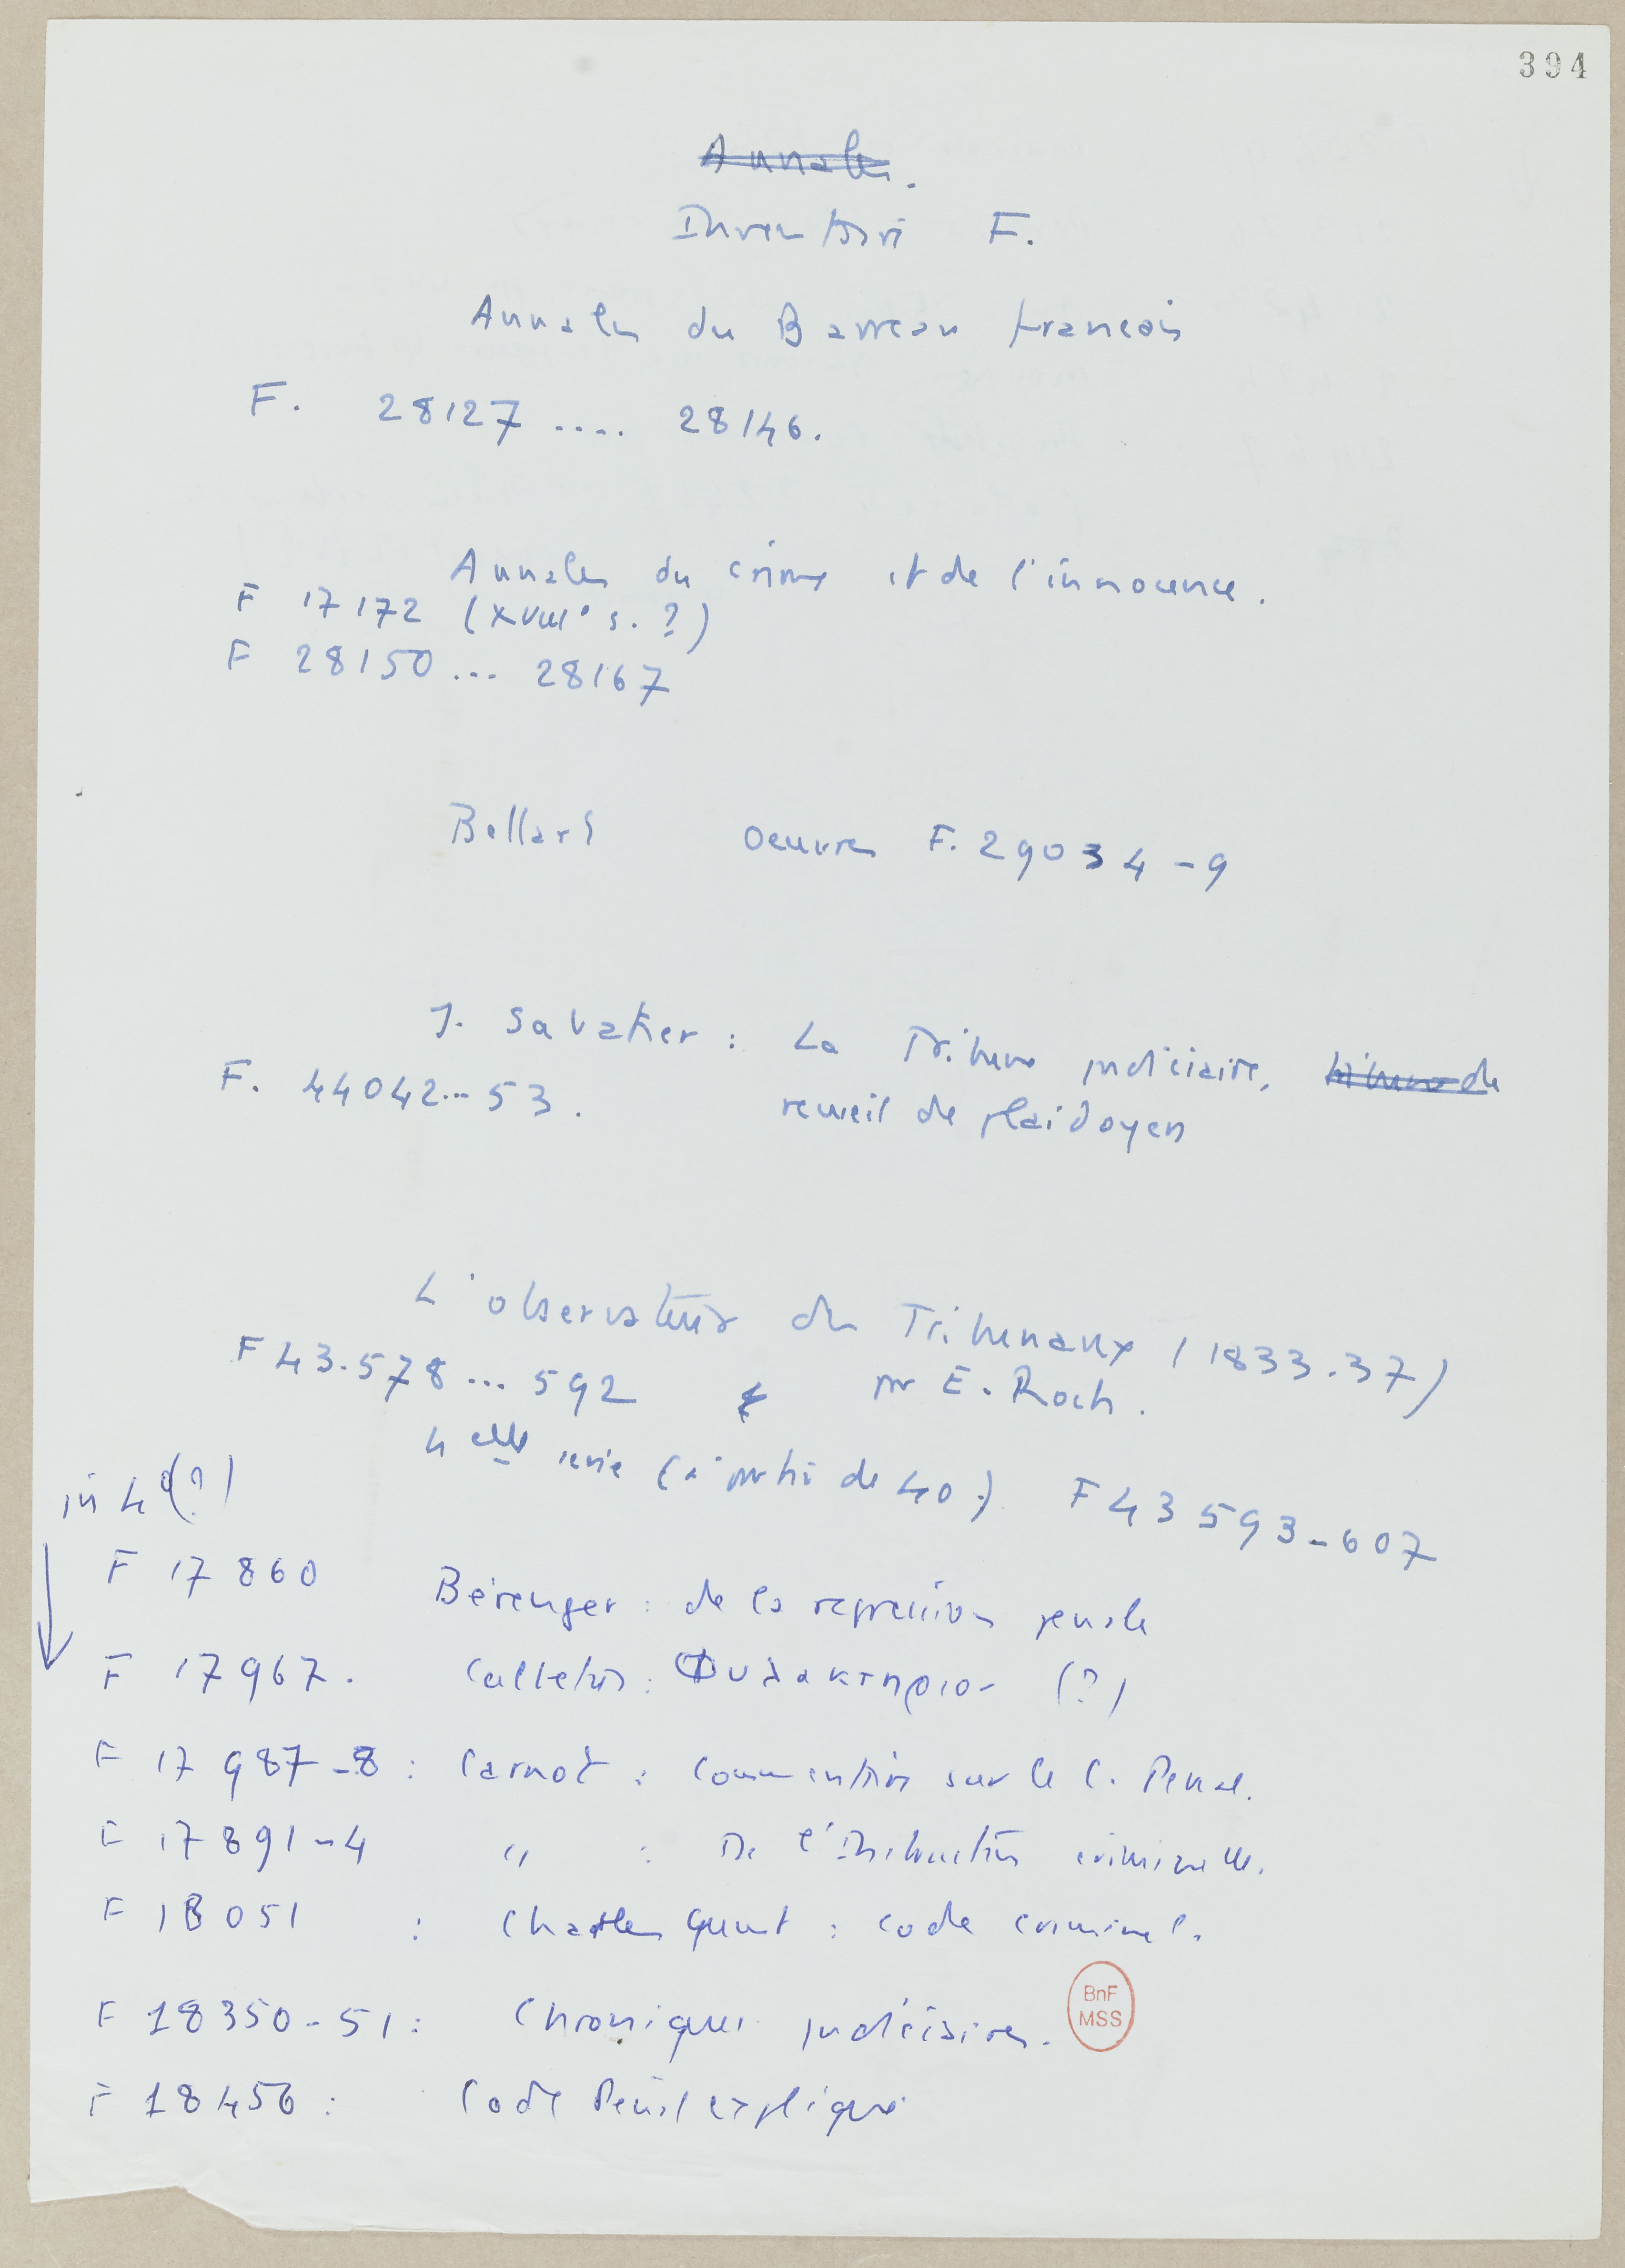 394
Annales.
Inventaire F.
Annales du Barreau francais
F. 28127 .... 28146.
Annales du crime et de l'innocence.
F 17172 (XVIII° s. ?)
F 28150 ... 28167
Bellart Oeuvres F. 29034-9
J. Sabatier : La Tribune judiciaire, tribune de
F. 44042...53. recueil de plaidoyers
L'observateur des Tribunaux (1833.37)
F 43.578 ... 592 par E. Roch.
4 série (à partir de 40.) F 43 593-607
in 4°(?)
F 17 860 Bérenger : de la repression penale
F 17967. Colletet : Φυλακτηριον (?)
F 17 987-8 : Carnot : Commentaire sur le C. Penal.
F 17891-4 " : De l'Instruction criminelle.
F 18051 : Charles Quint : code criminel.
F 18350-51 : Chroniques judiciaires.
BnF
MSS
F 18456 : Code Penal expliqué